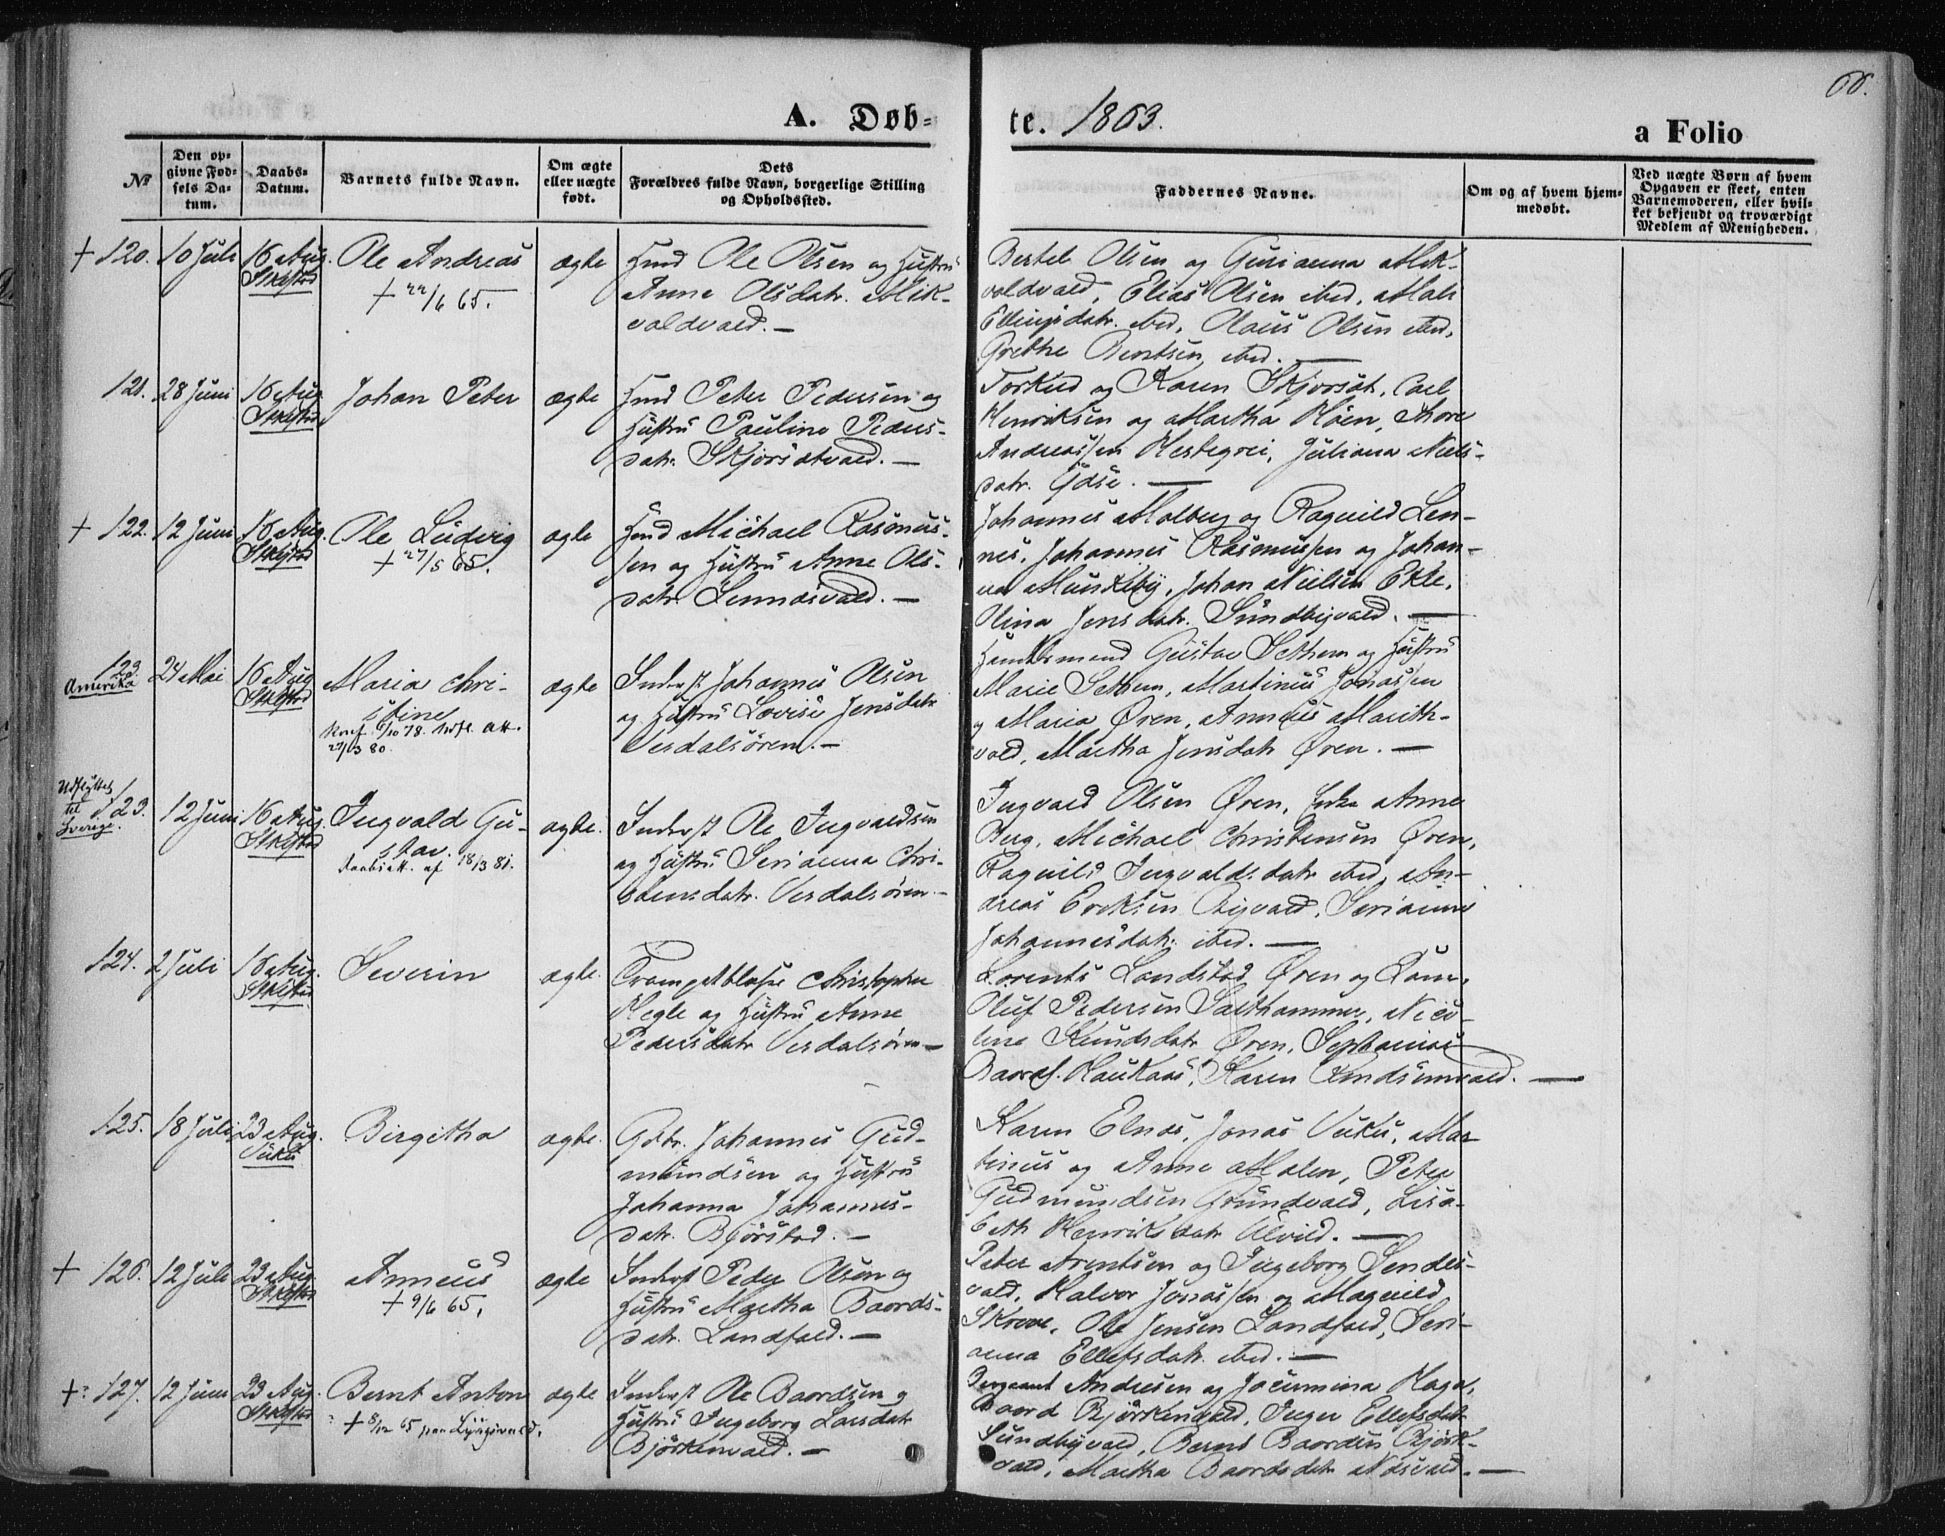 66.
A. Døb=
te. 1863.
a Folio
No
Den op=
givne Fød=
sels Da=
tum.
Daabs=
Datum.
Barnets fulde Navn.
Om ægte
eller uægte
født.
Dets
Forældres fulde Navn, borgerlige Stilling
og Opholdssted.
Faddernes Navne.
Om og af hvem hjem=
medøbt.
Ved uægte Børn af hvem
Opgaven er skeet, enten
Barnemoderen, eller hvil=
ket bekjendt og troværdigt
Medlem af Menigheden.
+ 120. 10 Juli 16 Aug.
Ole Andreas
+ 22/6 65.
ægte
Hmd Ole Olsen og Hustru
Anne Olsdatr. Mik-
voldvald. —
Bertel Olsen og Gurianna Mik-
voldvald, Elias Olsen ibid,
Ellingsdatr. ibid, Olaus Olsen ibid,
Grethe Berntsen ibid. —
121. 28 Juni 16 Aug
Johan Peter
ægte
Hmd Peter Pedersen og
Hustru Pauline Peders-
datr. Skjørsætvald. —
og Karen Skjørsæt, Carl
Henriksen og Martha
Andreassen Hestegrei, Juliana Niels-
datr.
+ 122. 12 Juni 16 Aug.
Ole Ludvig
+ 27/5 65.
ægte
Hmd Michael Rasmus-
sen og Hustru Anne Ols-
datr. Lennesvald. —
Johannes Molberg og Ragnild Len-
nes, Johannes Rasmussen og Johan-
na Mundkby, Johan Nielsen Ekle,
Olina Jensdatr. Sundbyvald. —
123. 24 Mai 16 Aug
Amerika
Maria Chri-
stine
Konf. 6/10 78.
27/3 80.
ægte
Inderst Johannes Olsen
og Hustru Lovise Jensdatr
Verdalsøren. —
Gustav Sethem og Hustru
Marie Sethem, Martinus Jonassen
og Maria Øren, Anneus Marith-
vald, Martha Jensdatr Øren. —
Udflyttet
til
Sverige.
123. 12 Juni 16 Aug.
Ingvald Gu-
stav.
Daabsatt. af 18/3 81.
ægte.
Inderst Ole Ingvaldsen
og Hustru Serianna Chri-
stensdatr. Verdalsøren. —
Ingvald Olsen Øren, Enke Anne
Berg, Michael Christensen Øren,
Ragnild Ingvaldsdatr ibid, An-
dreas Eriksen Byvald, Serianna
Johannesdatr. ibid. —
124. 2 Juli 16 Aug.
Severin
ægte.
Trompetblæser Christopher
Hegle og Hustru Anne
Pedersdatr Verdalsøren —
Lorents Landstad Øren og
Oluf Pedersen Salthammer, Nico-
line Knudsdatr Øren,
Baards. Haukaas, Karen
125. 18 Juli 23 Aug.
Vuku
Birgitha
ægte.
Gdbr. Johannes Gud-
mundsen og Hustru
Johanna Johannes-
datr. Bjørstad. —
Karen Elnæs, Jonas Vuku, Mar-
tinus og Anne Molen, Peter
Gudmundsen Grundvald, Lisa-
beth Henriksdatr Ulvild. —
+ 126. 12 Juli 23 Aug
Anneus
+ 9/6 65.
ægte
Inderst Peder Olsen og
Hustru Martha Baards-
datr. Landfald. —
Peter Arentsen og Ingeborg Sendes-
vald, Halvor Jonassen og Magnild
Skrove, Ole Jensen Landfald, Seri-
anna Ellefsdatr. ibid. —
+? 127. 12 Juni 23 Aug.
Bernt Anton
? + 8/12 65 paa Lyngsvald.
ægte
Inderst Ole Baardsen og
Hustru Ingeborg Larsdatr
Bjørkenvald. —
Sergeant Andresen og Jacumina Haga,
Baard Bjørkenvald, Inger Ellefsdatr
Sundbyvald, Bernt Baardsen Bjørk-
vald, Martha Baardsdatr Næsvald. —